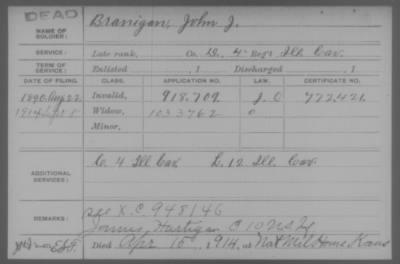 DEAD
NAME OF SOLDIER: Branigan, John J.
SERVICE: Late rank, Co. G, 4 Reg't Ill. Cav.
TERM OF SERVICE: Enlisted , 1 Discharged , 1
DATE OF FILING. CLASS. APPLICATION NO. LAW. CERTIFICATE NO.
1890 Aug 22 Invalid, 918.709 J. O 772.421
1914 Widow, 1033762 O
Minor,
ADDITIONAL SERVICES: C. 4 Ill Cav L. 12 Ill. Cav
REMARKS: X.C. 948146
Hartigan C 10
Died Apr 15, 1914, at Nat Mil Home Kans